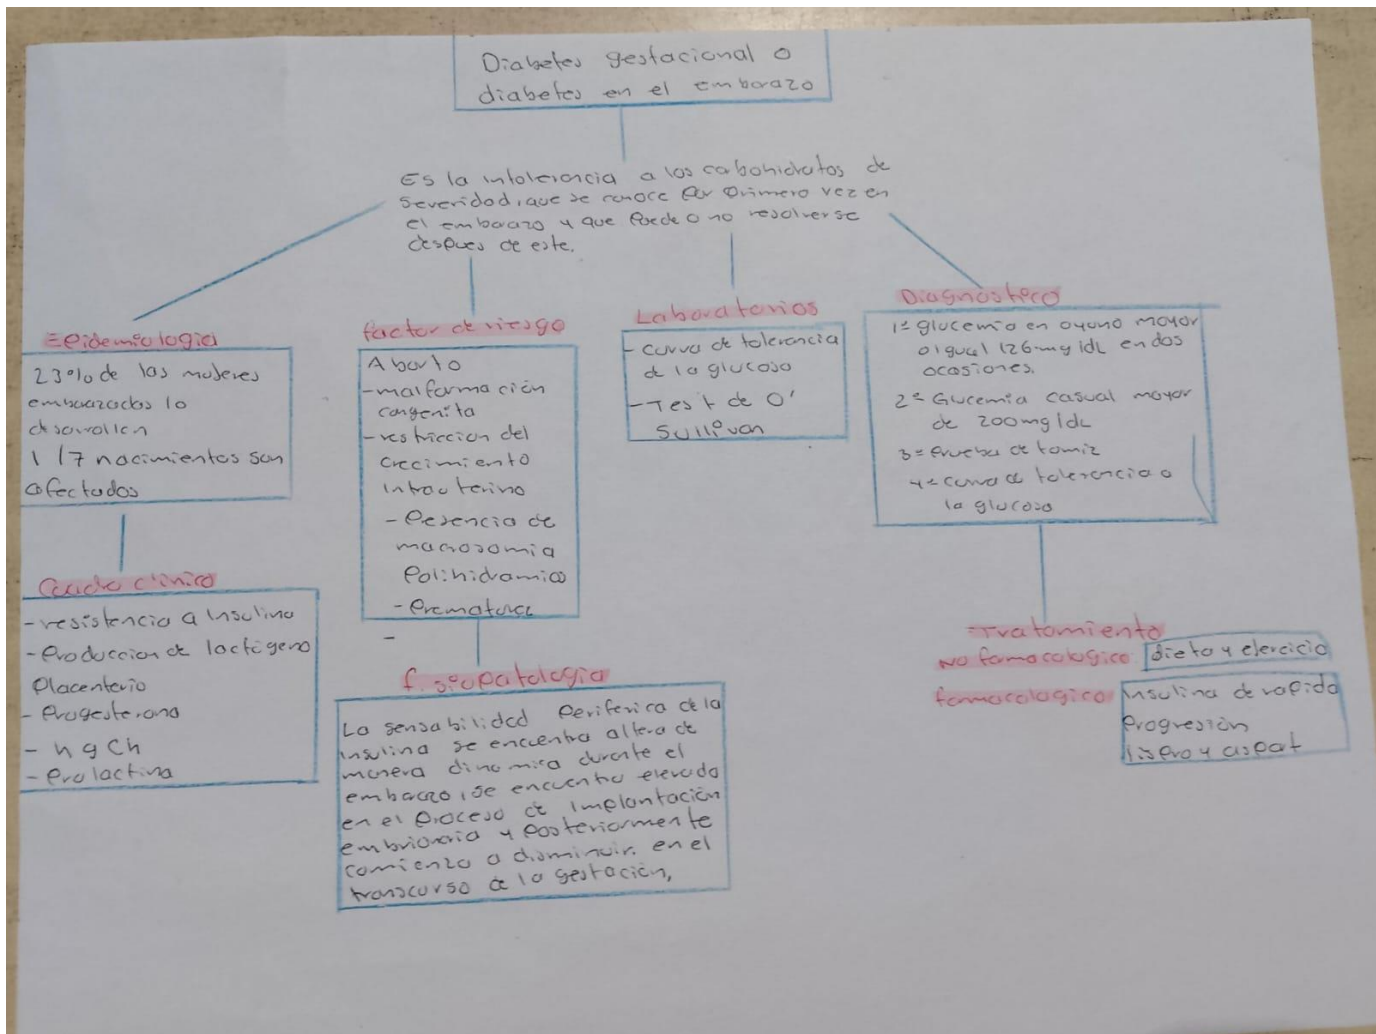 Diabetes gestacional o
diabetes en el embarazo
Es la intolerencia a los carbohidratos de
severidad, que se conoce por primero vez en
el embarazo y que puede o no resolverse
despues de este.
Epidemiologia
23% de las mujeres
embarazadas lo
desarrollen
1/7 nacimientos son
afectados
Cuadro clinico
-resistencia a Insulina
-Produccion de lactogeno
Placenterio
-Progesterona
-hgCh
-Prolactina
factor de riesgo
Aborto
-malformación
congenita
-restriccion del
crecimiento
Intrauterino
-Presencia de
macrosomia
Polihidramico
-Prematurez
-
fisiopatologia
La sensabilidad Periferica de la
insulina se encuentra altera de
manera dinamica durante el
embarazo, se encuentra elevada
en el Proceso de Implantación
embrionaria y Posteriormente
comienza a disminuir. en el
transcurso de la gestación,
Laboratorios
-curva de tolerancia
de la glucosa
-Test de O'
Sullivan
Diagnosteco
1= glucemia en ayuno mayor
o igual 126mg/dL en dos
ocasiones.
2= Glucemia casual mayor
de 200mg/dL
3= Prueba de tamiz
4= curva de tolerencia a
la glucosa
Tratamiento
No farmacologico dieta y ejercicio
farmacologico Insulina de rapida
Progresión
lispro y aspat